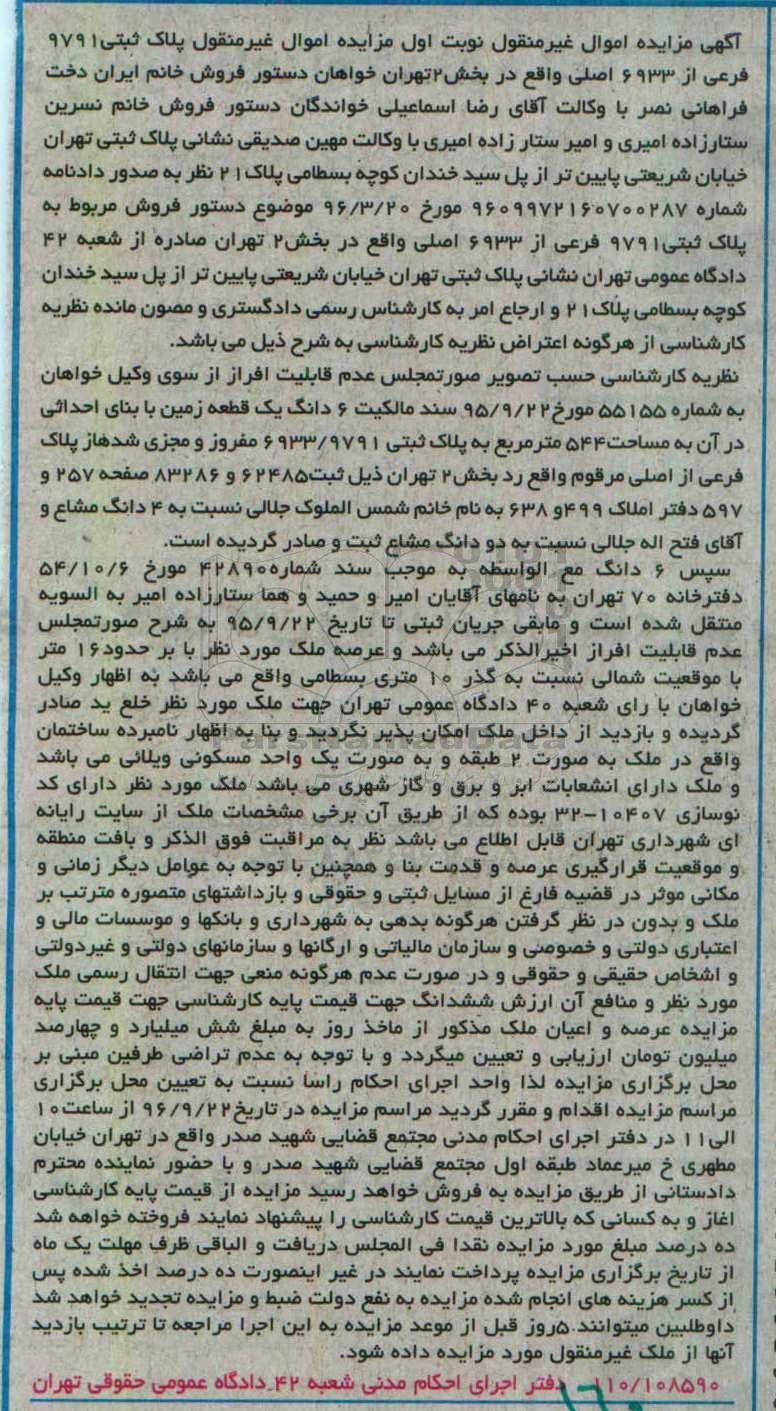 آگهی مزایده اموال غیرمنقول نوبت اول مزایده اموال غیرمنقول پلاک ثبتی۹۷۹۱
فرعی از ۶۹۳۳ اصلی واقع در بخش۲تهران خواهان دستور فروش خانم ایران دخت
فراهانی نصر با وکالت آقای رضا اسماعیلی خواندگان دستور فروش خانم نسرین
ستارزاده امیری و امیر ستار زاده امیری با وکالت مهین صدیقی نشانی پلاک ثبتی تهران
خیابان شریعتی پایین تر از پل سید خندان کوچه بسطامی پلاک۲۱ نظر به صدور دادنامه
شماره ۹۶۰۹۹۷۲۱۶۰۷۰۰۲۸۷ مورخ ۹۶/۳/۲۰ موضوع دستور فروش مربوط به
پلاک ثبتی۹۷۹۱ فرعی از ۶۹۳۳ اصلی واقع در بخش۲ تهران صادره از شعبه ۴۲
دادگاه عمومی تهران نشانی پلاک ثبتی تهران خیابان شریعتی پایین تر از پل سید خندان
کوچه بسطامی پلاک۲۱ و ارجاع امر به کارشناس رسمی دادگستری و مصون مانده نظریه
کارشناسی از هرگونه اعتراض نظریه کارشناسی به شرح ذیل می باشد.
نظریه کارشناسی حسب تصویر صورتمجلس عدم قابلیت افراز از سوی وکیل خواهان
به شماره ۵۵۱۵۵ مورخ۹۵/۹/۲۲ سند مالکیت ۶ دانگ یک قطعه زمین با بنای احداثی
در آن به مساحت۵۴۴ مترمربع به پلاک ثبتی ۶۹۳۳/۹۷۹۱ مفروز و مجزی شدهاز پلاک
فرعی از اصلی مرقوم واقع رد بخش۲ تهران ذیل ثبت۶۲۴۸۵ و ۸۳۲۸۶ صفحه ۲۵۷ و
۵۹۷ دفتر املاک ۴۹۹و ۶۳۸ به نام خانم شمس الملوک جلالی نسبت به ۴ دانگ مشاع و
آقای فتح اله جلالی نسبت به دو دانگ مشاع ثبت و صادر گردیده است.
سپس ۶ دانگ مع الواسطه به موجب سند شماره۴۲۸۹۰ مورخ ۵۴/۱۰/۶
دفترخانه ۷۰ تهران به نامهای آقایان امیر و حمید و هما ستارزاده امیر به السویه
منتقل شده است و مابقی جریان ثبتی تا تاریخ ۹۵/۹/۲۲ به شرح صورتمجلس
عدم قابلیت افراز اخیرالذکر می باشد و عرصه ملک مورد نظر با بر حدود۱۶ متر
با موقعیت شمالی نسبت به گذر ۱۰ متری بسطامی واقع می باشد به اظهار وکیل
خواهان با رای شعبه ۴۰ دادگاه عمومی تهران جهت ملک مورد نظر خلع ید صادر
گردیده و بازدید از داخل ملک امکان پذیر نگردید و بنا به اظهار نامبرده ساختمان
واقع در ملک به صورت ۲ طبقه و به صورت یک واحد مسکونی ویلائی می باشد
و ملک دارای انشعابات ابر و برق و گاز شهری می باشد ملک مورد نظر دارای کد
نوسازی ۱۰۴۰۷-۳۲ بوده که از طریق آن برخی مشخصات ملک از سایت رایانه
ای شهرداری تهران قابل اطلاع می باشد نظر به مراقبت فوق الذکر و بافت منطقه
و موقعیت قرارگیری عرصه و قدمت بنا و همچنین با توجه به عوامل دیگر زمانی و
مکانی موثر در قضیه فارغ از مسایل ثبتی و حقوقی و بازداشتهای متصوره مترتب بر
ملک و بدون در نظر گرفتن هرگونه بدهی به شهرداری و بانکها و موسسات مالی و
اعتباری دولتی و خصوصی و سازمان مالیاتی و ارگانها و سازمانهای دولتی و غیردولتی
و اشخاص حقیقی و حقوقی و در صورت عدم هرگونه منعی جهت انتقال رسمی ملک
مورد نظر و منافع آن ارزش ششدانگ جهت قیمت پایه کارشناسی جهت قیمت پایه
مزایده عرصه و اعیان ملک مذکور از ماخذ روز به مبلغ شش میلیارد و چهارصد
میلیون تومان ارزیابی و تعیین میگردد و با توجه به عدم تراضی طرفین مبنی بر
محل برگزاری مزایده لذا واحد اجرای احکام راسا نسبت به تعیین محل برگزاری
مراسم مزایده اقدام و مقرر گردید مراسم مزایده در تاریخ۹۶/۹/۲۲ از ساعت۱۰
الی۱۱ در دفتر اجرای احکام مدنی مجتمع قضایی شهید صدر واقع در تهران خیابان
مطهری خ میرعماد طبقه اول مجتمع قضایی شهید صدر و با حضور نماینده محترم
دادستانی از طریق مزایده به فروش خواهد رسید مزایده از قیمت پایه کارشناسی
اغاز و به کسانی که بالاترین قیمت کارشناسی را پیشنهاد نمایند فروخته خواهه شد
ده درصد مبلغ مورد مزایده نقدا فی المجلس دریافت و الباقی ظرف مهلت یک ماه
از تاریخ برگزاری مزایده پرداخت نمایند در غیر اینصورت ده درصد اخذ شده پس
از کسر هزینه های انجام شده مزایده به نفع دولت ضبط و مزایده تجدید خواهد شد
داوطلبین میتوانند ۵روز قبل از موعد مزایده به این اجرا مراجعه تا ترتیب بازدید
آنها از ملک غیرمنقول مورد مزایده داده شود.
۱۱۰/۱۰۸۵۹۰ دفتر اجرای احکام مدنی شعبه ۴۲ دادگاه عمومی حقوقی تهران